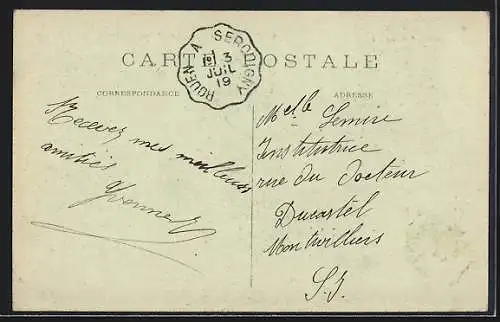 CARTE POSTALE
ROUEN A SERQUIGNY
3
JUIL
19
CORRESPONDANCE
ADRESSE
Recevez mes meilleures
amitiés
Yvonne
Melle Lemire
Institutrice
rue du docteur
Ducastel
Montivilliers
S. I.